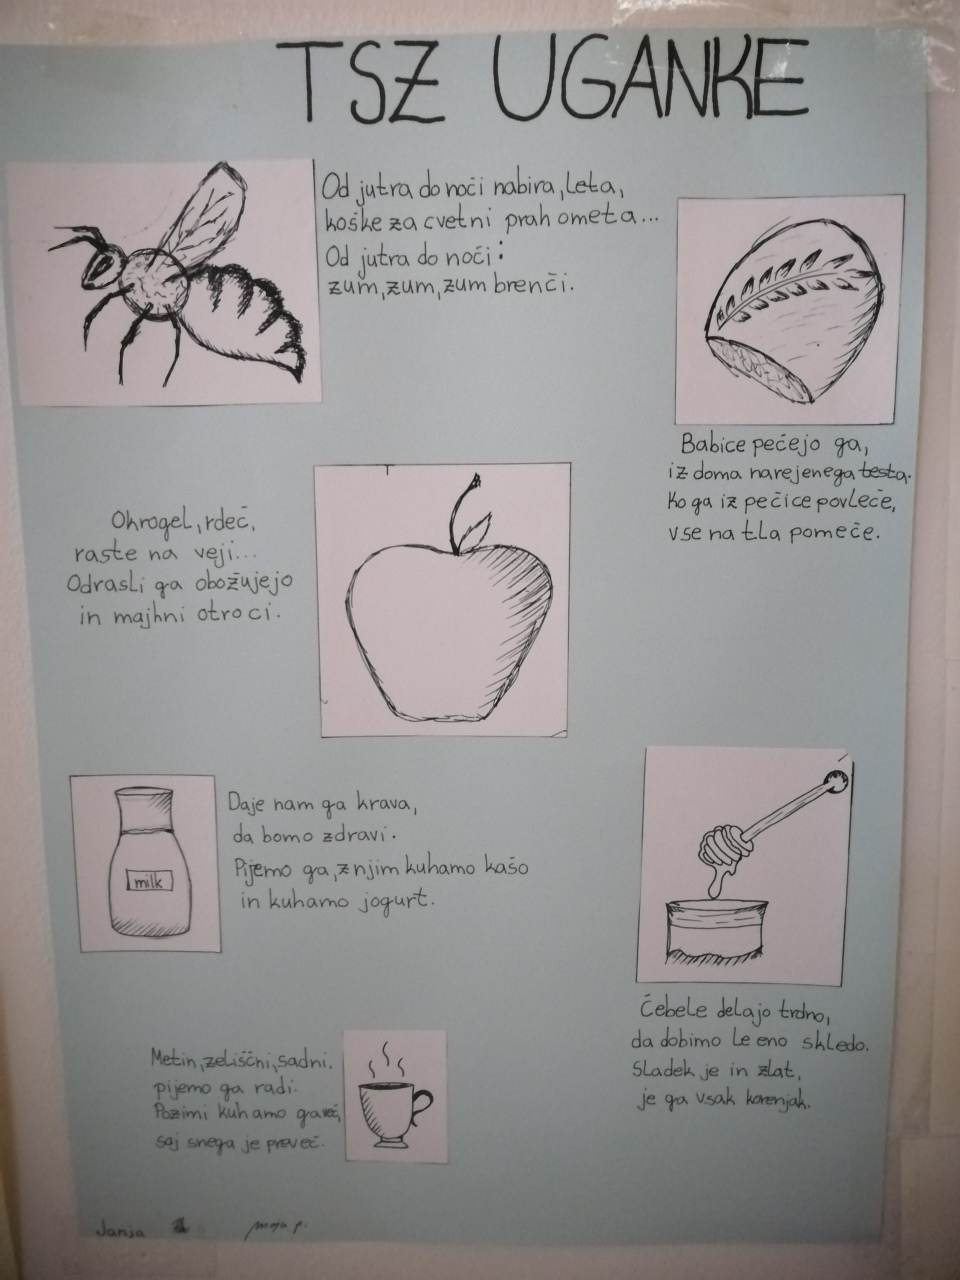 TSZ UGANKE
Od jutra do noči nabira, leta,
koške za cvetni prah ometa...
Od jutra do noči:
zum, zum, zum brenči.
Babice pečejo ga,
iz doma narejenega testa.
Ko ga iz pečice povleče,
vse na tla pomeče.
Okrogel, rdeč,
raste na veji...
Odrasli ga obožujejo
in majhni otroci.
Daje nam ga krava,
da bomo zdravi.
Pijemo ga, z njim kuhamo kašo
in kuhamo jogurt.
milk
Čebele delajo trdno,
da dobimo le eno skledo.
Sladek je in zlat,
je ga vsak korenjak.
Metin, zeliščni, sadni.
pijemo ga radi.
Pozimi kuhamo ga več,
saj snega je preveč.
Janja